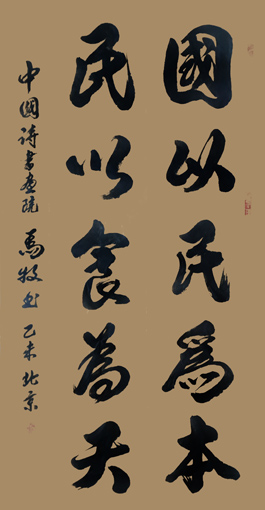 國以民為本
民以食為天
中國詩書畫院 馬牧書 乙未北京